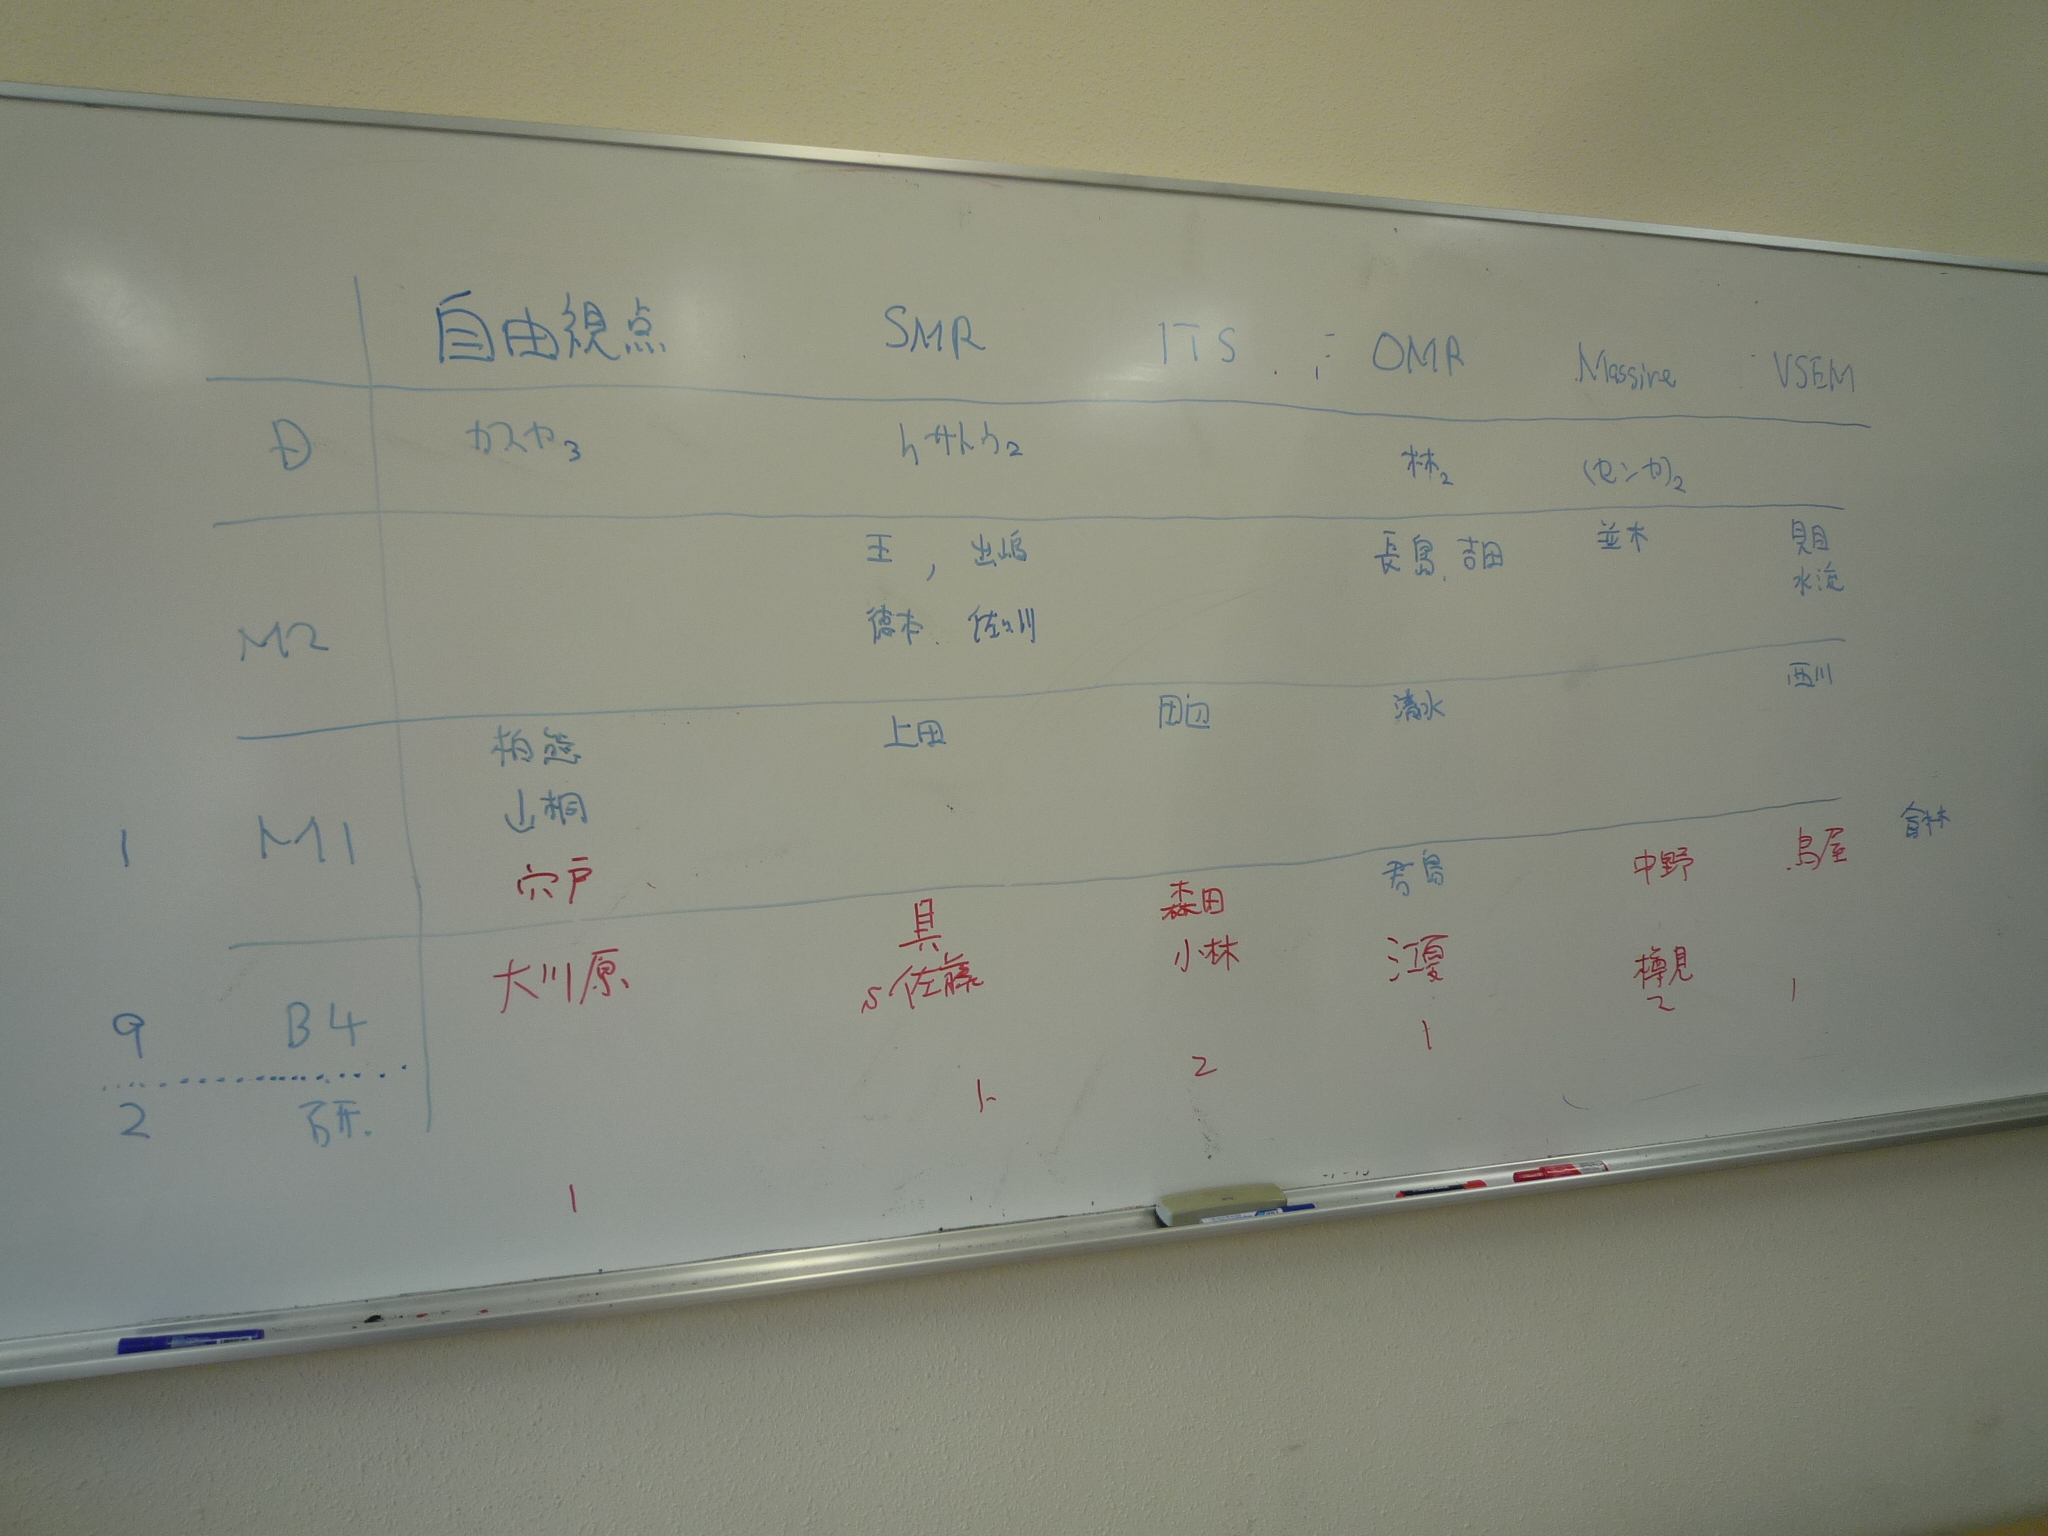 自由視点 SMR ITS OMR Massive VSEM
D カスヤ3 hサトウ2 林2 (センカ)2
王, 出嶋 長島、吉田 並木 見目
水流
M2 徳本、佐久川
西川
柏熊 上田 田辺 清水
山桐
1 M1
穴戸 君島 中野 鳥屋
大川原 具 森田
S佐藤 小林 江夏 樽見
9 B4
2 研
1 1 2 1 2 1